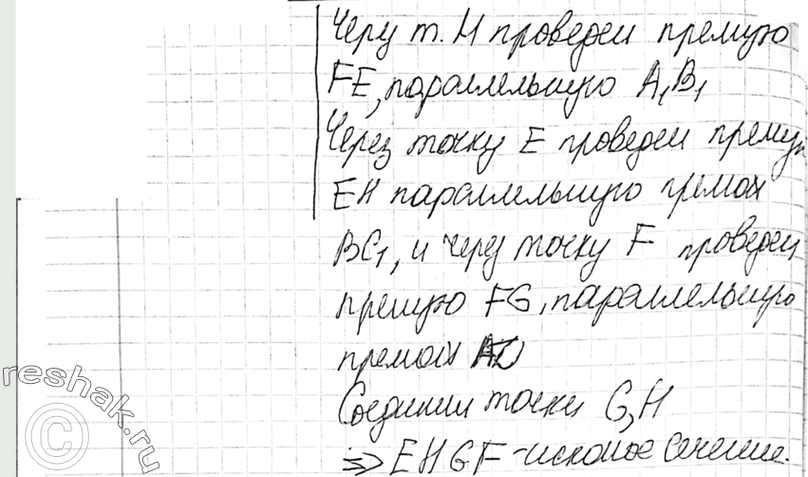 Через т. М проведем прямую
FE, параллельную A₁B₁
Через точку E проведем прямую
EH параллельную прямой
BC₁, и через точку F проведем
прямую FG, параллельную
прямой
Соединим точки G, H
⇒ EHGF - искомое сечение.
reshak.ru
©